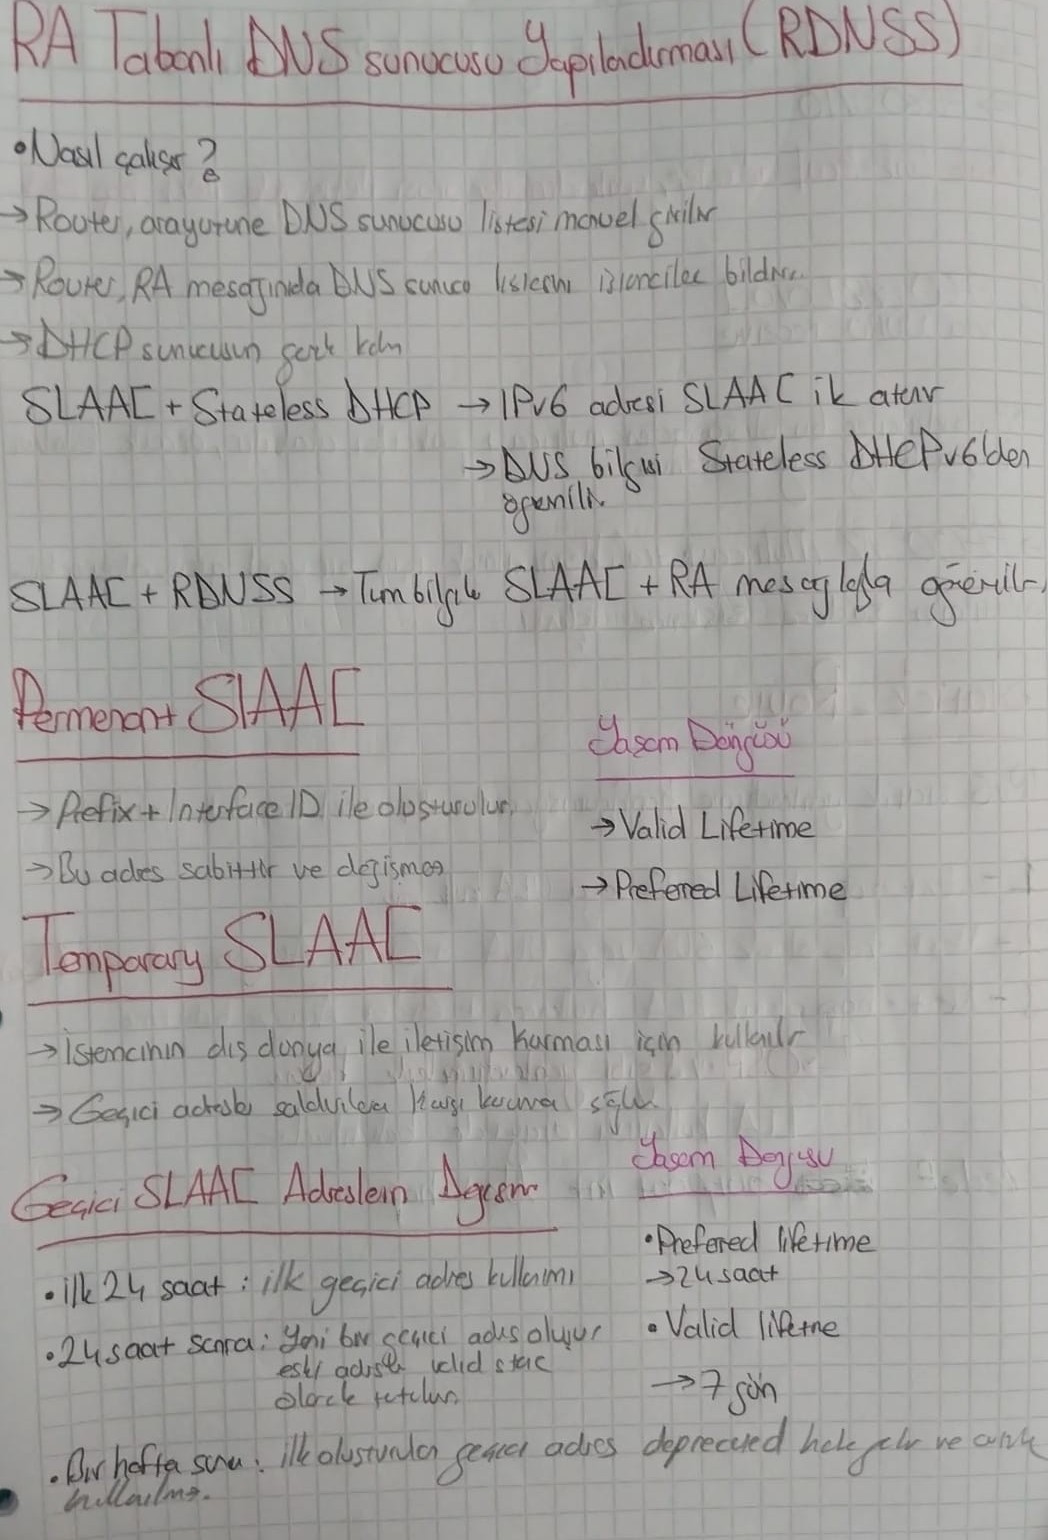 RA Tabanlı DNS sunucusu Yapılandırması (RDNSS)
• Nasıl çalışır?
→ Router, arayuzune DNS sunucusu listesi manuel girilir
→ Router, RA mesajınıda DNS sunucu listesini istemcilere bildirir.
→ DHCP sunucusun gerek kalm
SLAAC + Stateless DHCP → IPv6 adresi SLAAC ile atanır
→ DNS bilgisi Stateless DHCPv6'den
ögrenilir.
SLAAC + RDNSS → Tum bilgile SLAAC + RA mesajlarıyla
Permenant SLAAC
Yasam Döngüsü
→ Prefix + Interface ID ile olusturulur.
→ Valid Lifetime
→ Bu adres sabittir ve degişmez
→ Preferred Lifetime
Temporary SLAAC
→ istemcinin dış dunya ile iletişim kurması için kullanılır
→ Geçici adresle saldırılara karşı koruma sağlar.
Yasam Dongusu
Geçici SLAAC Adreslerin Degisim
• Prefered lifetime
• ilk 24 saat : ilk geçici adres kullanımı
→ 24 saat
• 24 saat sonra : Yeni bir geçici adres oluşur
• Valid lifetme
eski adresle valid state
olarak tutulur.
→ 7 gün
• Bir hafta sonra : ilk olusturulan gecici adres deprecated hale gelir ve artık
kullanılmaz.